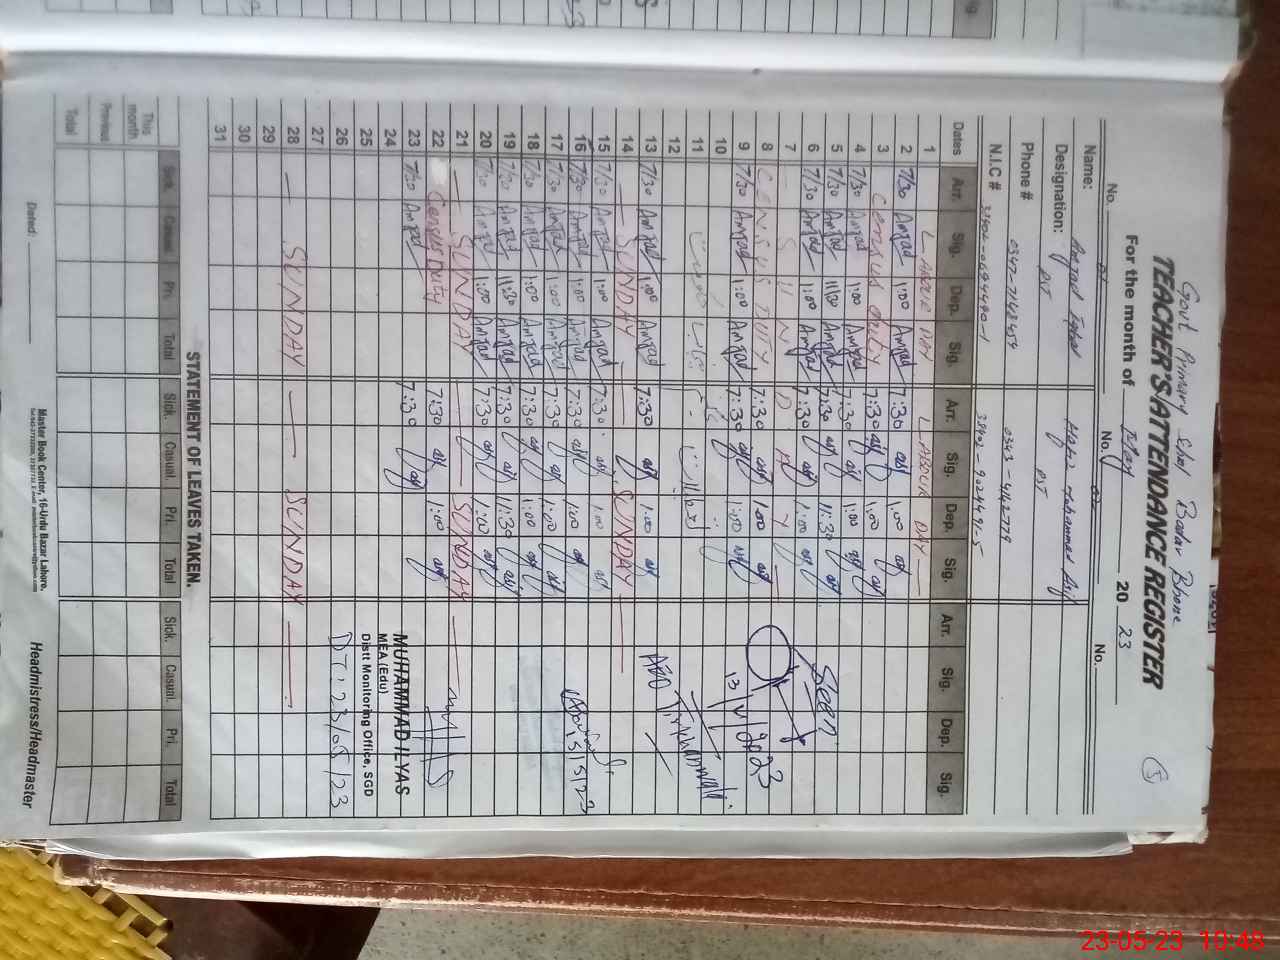 Govt Primary School Badar Bhone
TEACHER'S ATTENDANCE REGISTER
For the month of May 20 23
No. No. No.
Name: Amjad Iqbal
Designation: PST PST
Phone #
N.I.C #
Dates Arr. Sig. Dep. Sig. Arr. Sig. Dep. Sig. Arr. Sig. Dep. Sig.
1 LABOUR DAY LABOUR DAY
2 7/30 Amjad 1:00 Amjad 7:30 asf 1:00 asf
3 Census duty 7:30 asf 1:00 asf
4 7/30 Amjad 1:00 Amjad 7:30 asf 1:00 asf
5 7/30 Amjad 11/30 Amjad 7:30 asf 11:30 asf
6 7/30 Amjad 1:00 Amjad 7:30 asf 1:00 asf
7 SUNDAY
8 CENSUS DUTY 7:30 asf 1:00 asf
9 7/30 Amjad 1:00 Amjad 7:30 asf 1:00 asf
10
11
12
13 7/30 Amjad 1:00 Amjad 7:30 asf 1:00 asf
14 SUNDAY SUNDAY
15 7/30 Amjad 1:00 Amjad 7:30 asf 1:00 asf
16 7/30 Amjad 1:00 Amjad 7:30 asf 1:00 asf
17 7/30 Amjad 1:00 Amjad 7:30 asf 1:00 asf
18 7/30 Amjad 1:00 Amjad 7:30 asf 1:00 asf
19 7/30 Amjad 11:30 Amjad 7:30 asf 11:30 asf
20 7/30 Amjad 1:00 Amjad 7:30 asf 1:00 asf
21 SUNDAY SUNDAY
22 Census Duty 7:30 asf 1:00 asf
23 7/30 Amjad 7:30 asf
24
25
26
27
28 SUNDAY SUNDAY
29
30
31
Seen
13/V/2023
AEO
MUHAMMAD ILYAS
MEA (Edu)
Distt Monitoring Office, SGD
DT: 23/05/23
STATEMENT OF LEAVES TAKEN.
Sick. Casual. Pri. Total Sick. Casual. Pri. Total Sick. Casual. Pri. Total
This month.
Previous
Total
Dated:
Master Book Center, 16-Urdu Bazar Lahore.
Headmistress/Headmaster
23-05-23 10:48